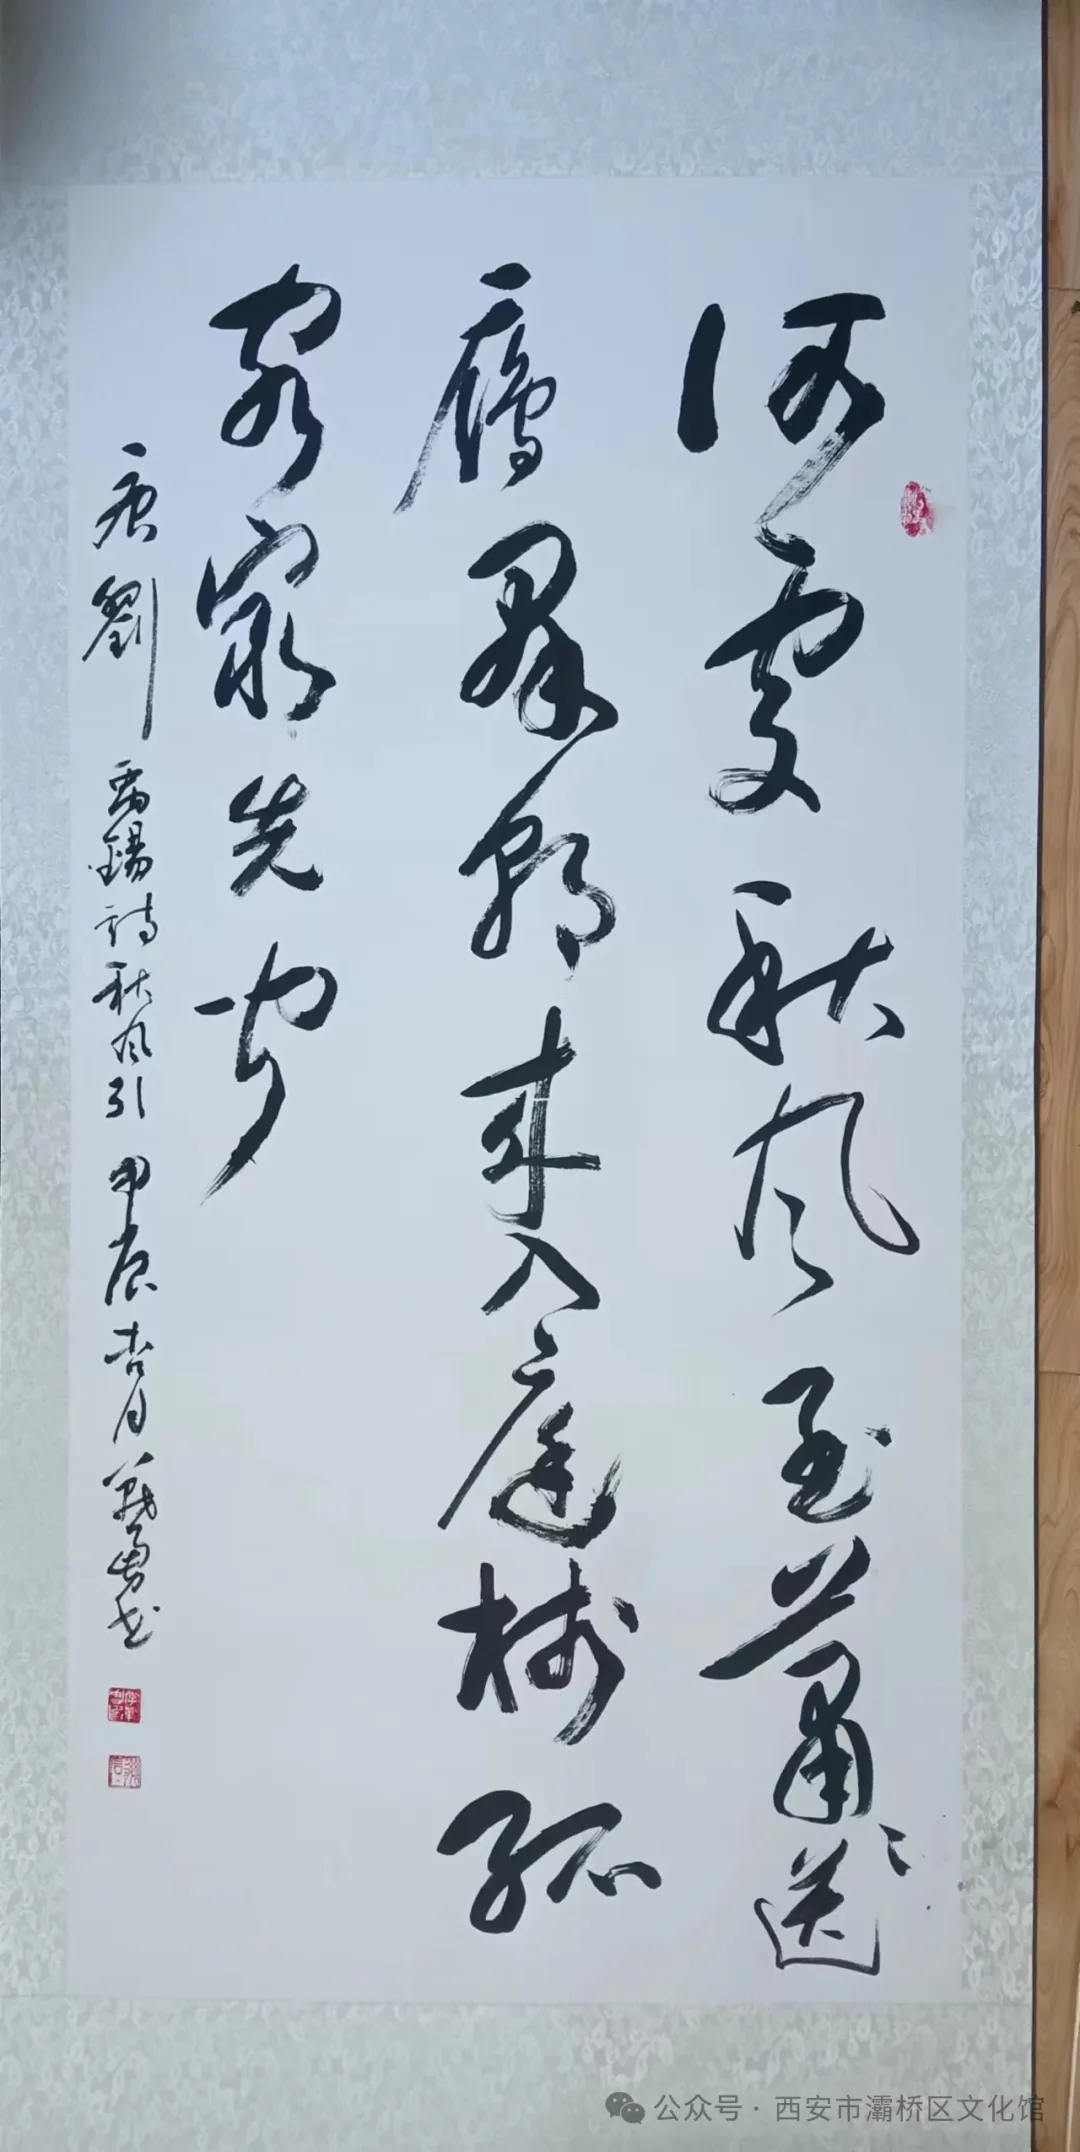 何處秋風至蕭〻送
鴈羣朝來入庭樹孤
客最先聞
唐劉禹錫詩秋風引 甲辰杏月 戰勇书
公众号 · 西安市灞桥区文化馆